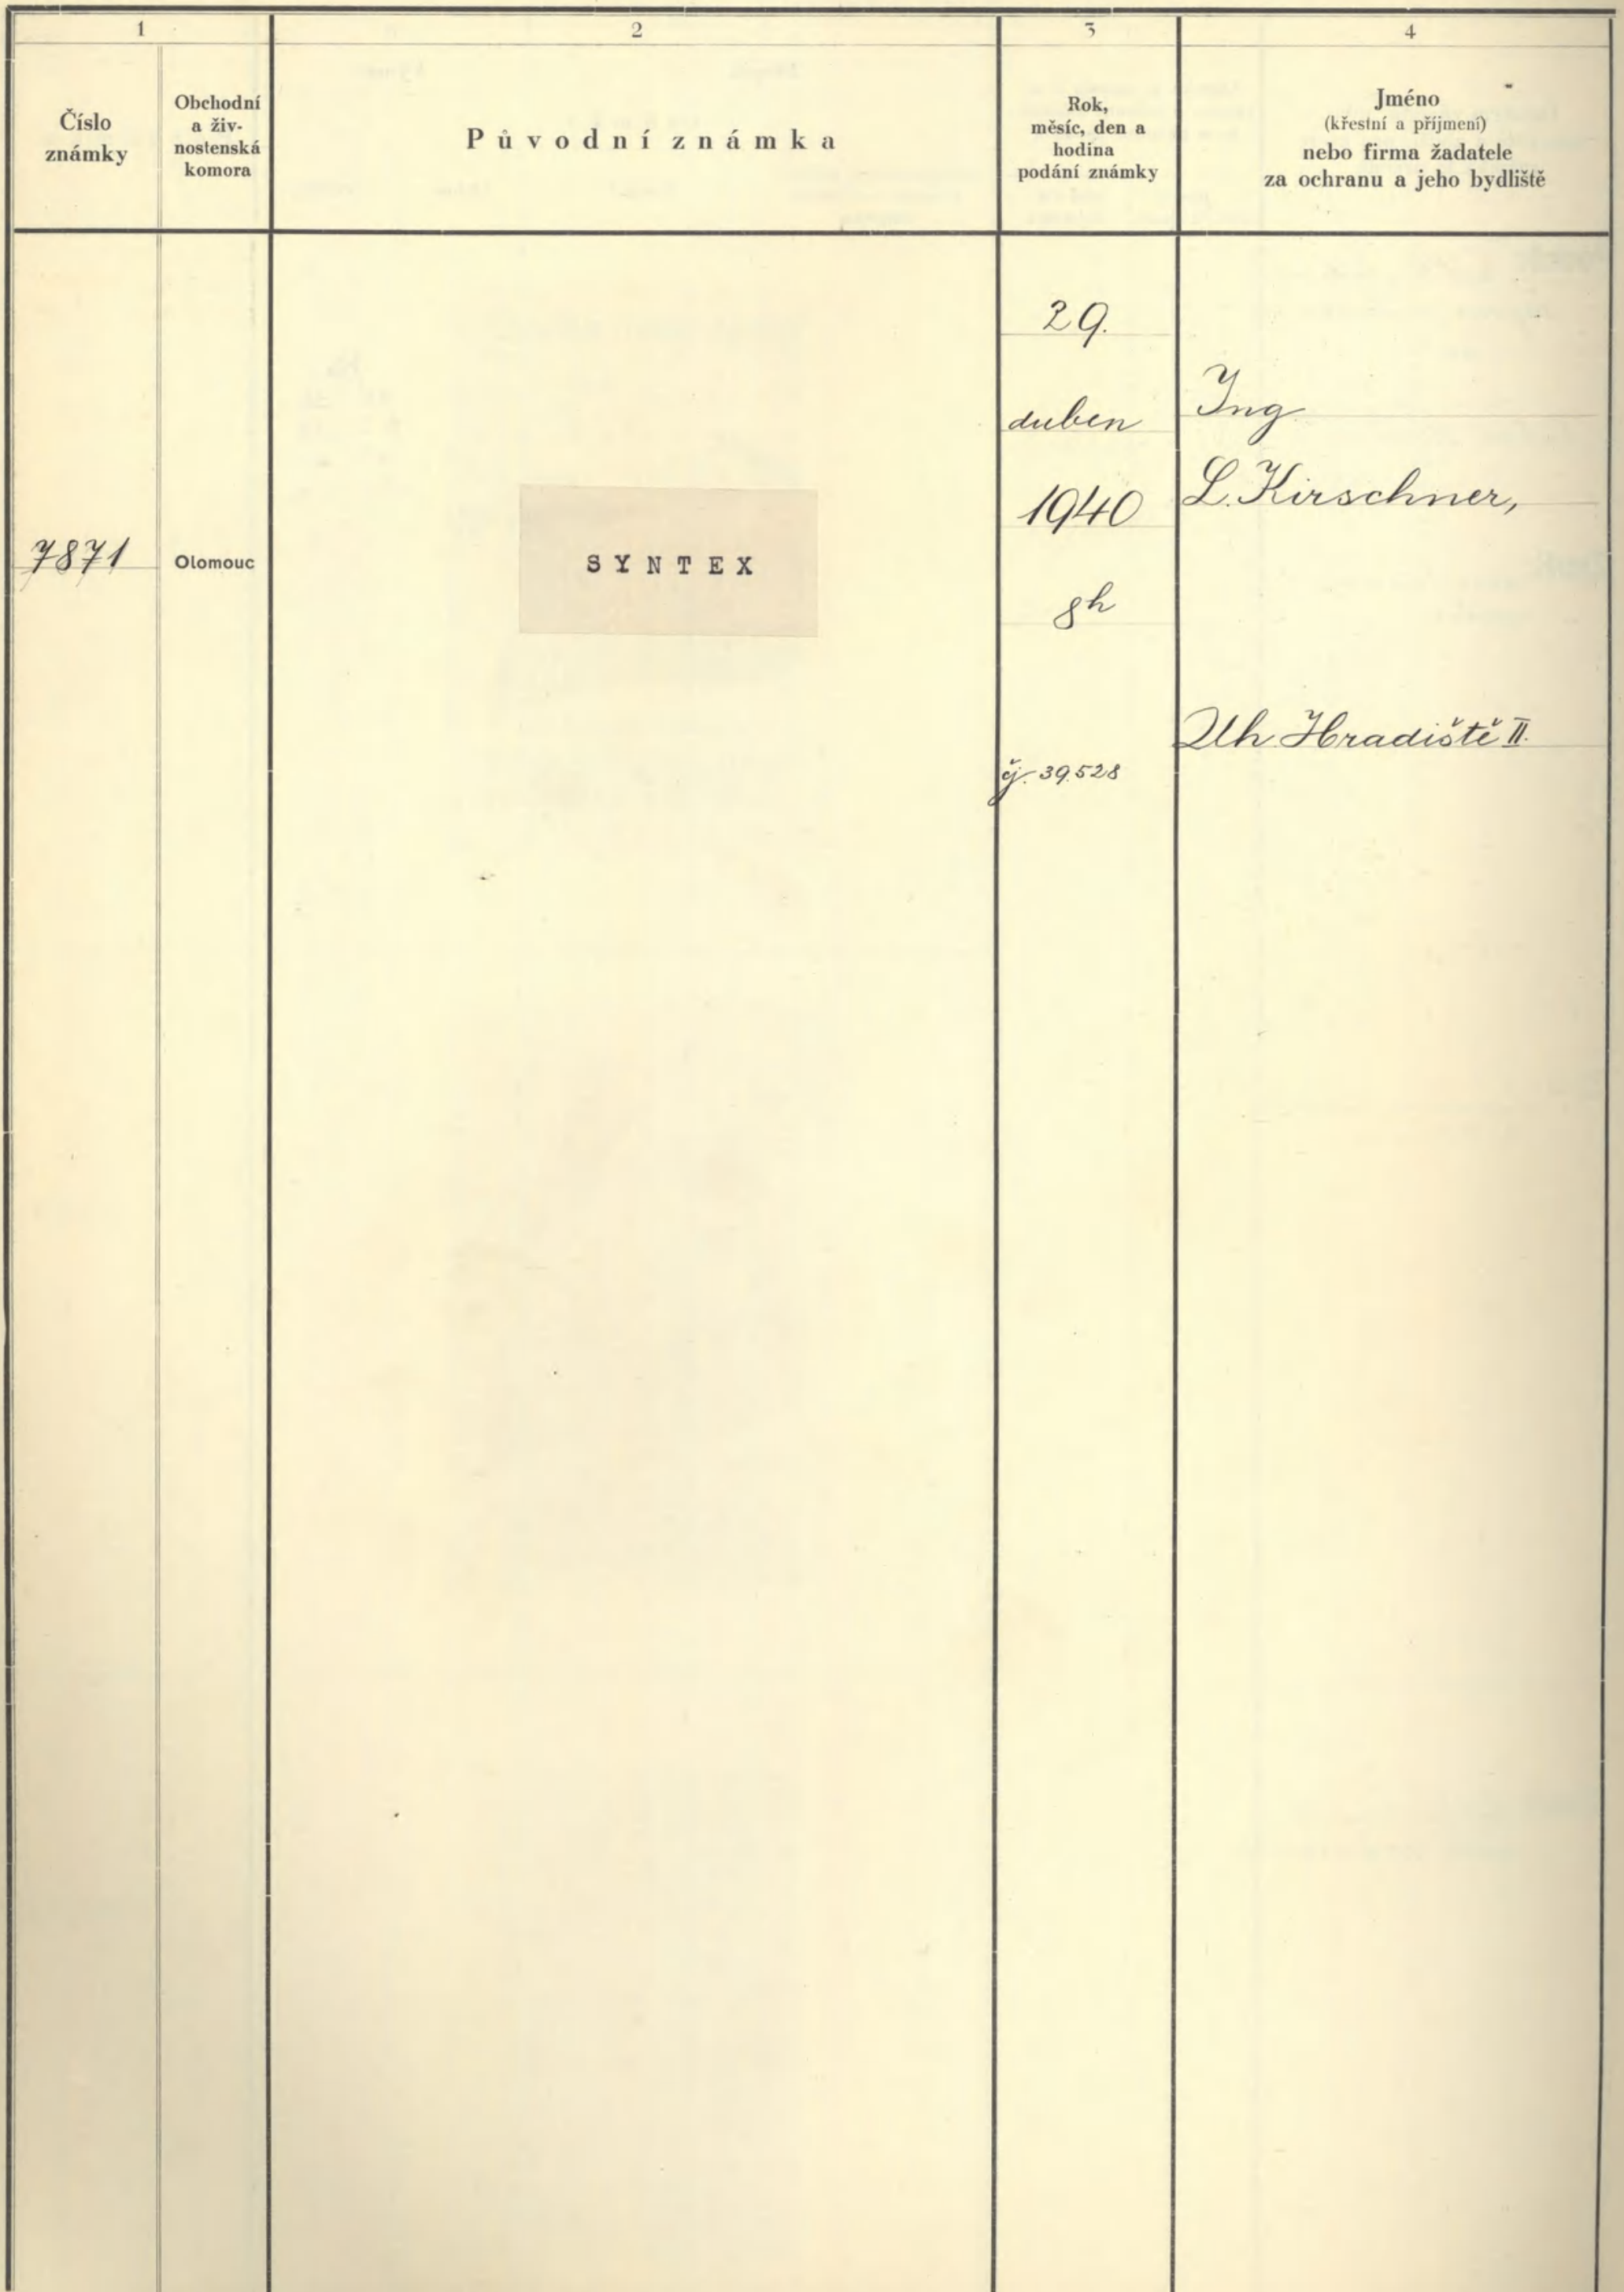 1
2
3
4
Číslo
známky
Obchodní
a živ-
nostenská
komora
Původní známka
Rok,
měsíc, den a
hodina
podání známky
Jméno
(křestní a příjmení)
nebo firma žadatele
za ochranu a jeho bydliště
7871
Olomouc
SYNTEX
29.
duben
1940
8h
čj. 39.528
Ing
L. Kirschner,
Uh. Hradiště II.